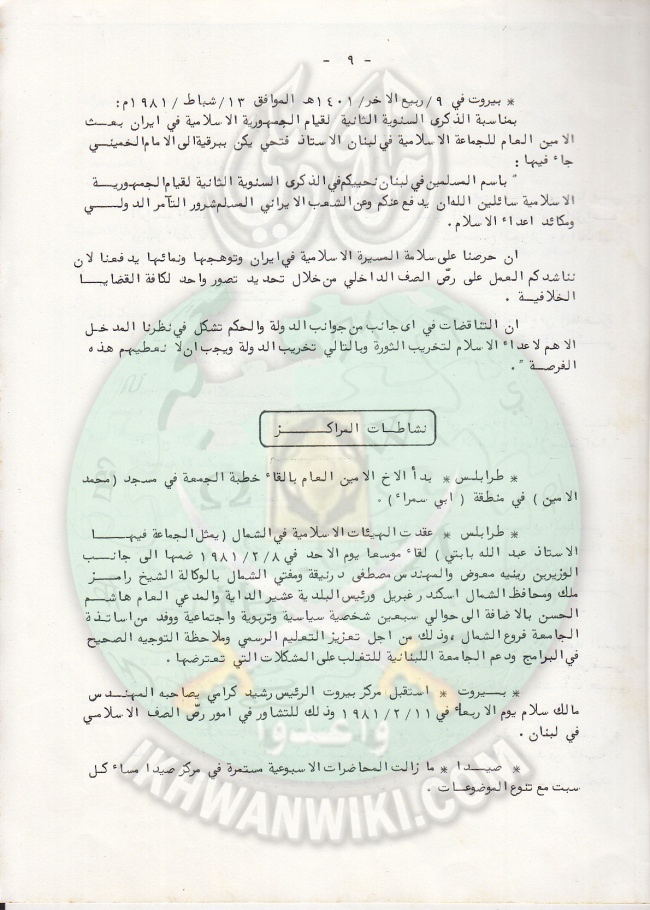 - ٩ -
* بيروت في ٩/ربيع الاخر/١٤٠١هـ الموافق ١٣/شباط/١٩٨١م:
بمناسبة الذكرى السنوية الثانية لقيام الجمهورية الاسلامية في ايران بعث
الامين العام للجماعة الاسلامية في لبنان الاستاذ فتحي يكن ببرقية الى الامام الخميني
جاء فيها :
" باسم المسلمين في لبنان نحييكم في الذكرى السنوية الثانية لقيام الجمهورية
الاسلامية سائلين الله ان يدفع عنكم وعن الشعب الايراني المسلم شرور التآمر الدولي
ومكائد اعداء الاسلام .
ان حرصنا على سلامة المسيرة الاسلامية في ايران وتوهجها ونمائها يدفعنا لان
نناشدكم العمل على رصّ الصف الداخلي من خلال تحديد تصور واحد لكافة القضايا
الخلافية .
ان التناقضات في اى جانب من جوانب الدولة والحكم تشكل في نظرنا المدخل
الاهم لاعداء الاسلام لتخريب الثورة وبالتالي تخريب الدولة ويجب ان لا نعطيهم هذه
الفرصة " .
نشاطات المراكز
* طرابلس * بدأ الاخ الامين العام بالقاء خطبة الجمعة في مسجد (محمد
الامين ) في منطقة ( ابي سمراء ) .
* طرابلس * عقدت الهيئات الاسلامية في الشمال ( يمثل الجماعة فيها
الاستاذ عبد الله بابتي ) لقاء موسعا يوم الاحد في ١٩٨١/٢/٨ ضمها الى جانب
الوزيرين رينيه معوض والمهندس مصطفى درنيقة ومفتي الشمال بالوكالة الشيخ رامز
ملك ومحافظ الشمال اسكندر غبريل ورئيس البلدية عشير الداية والمدعي العام هاشم
الحسن بالاضافة الى حوالي سبعين شخصية سياسية وتربوية واجتماعية ووفد من اساتذة
الجامعة فروع الشمال ، وذلك من اجل تعزيز التعليم الرسمي وملاحظة التوجيه الصحيح
في البرامج ودعم الجامعة اللبنانية للتغلب على المشكلات التي تعترضها .
* بيروت * استقبل مركز بيروت الرئيس رشيد كرامي يصاحبه المهندس
مالك سلام يوم الاربعاء في ١٩٨١/٢/١١ وذلك للتشاور في امور رصّ الصف الاسلامي
في لبنان .
* صيدا * ما زالت المحاضرات الاسبوعية مستمرة في مركز صيدا مساء كل
سبت مع تنوع الموضوعات .
وأعدوا
IKHWANWIKI.COM